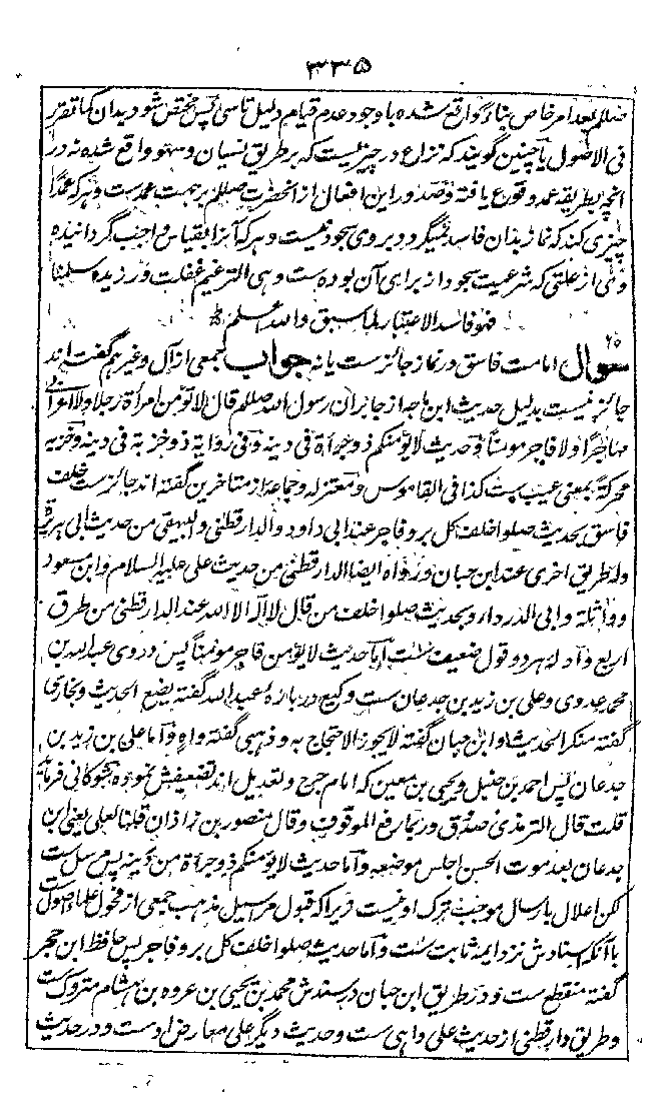 ۳۳۵
صلعم بعد امر خاص بنا بر واقع شده با وجود عدم قیام دلیل تاسی پس مختص شود بدان کما تقرر
فی الاصول یا چنین گویند که نزاع در چیزیست که بر طریق نسیان و سهو واقع شده نه در
آنچه بطریقه عمد وقوع یافته و صدور این افعال از آنحضرت صلعم بر جهت عمدست و هر که عمدًا
چیزی کند که نماز بدان فاسد نمیگردد بروی سجود نیست و هر که آنرا بقیاس واجب گردانیده
وی از علتی که شرعیت سجود از برای آن بوده ست وهی الترغیم غفلت ورزیده سلمنا
فهو فاسد الاعتبار لما سبق والله اعلم
سوال امامت فاسق در نماز جائزست یا نه جواب جمعی از آل و غیرهم گفته اند
جائز نیست بدلیل حدیث ابن ماجه از جابران رسول الله صلعم قال لا تؤمن امرأة رجلا ولا اعرابی
مهاجرًا ولا فاجر مومنًا وحدیث لا یؤمنکم ذو جرأة فی دینه وفی روایة ذو خزبة فی دینه وخزبه
محرکة بمعنی عیب ست کذا فی القاموس ومعتزله وجماعه از متاخرین گفته اند جائزست خلف
فاسق بحدیث صلوا خلف کل بر وفاجر عند ابی داود والدارقطنی والبیهقی من حدیث ابی هریرة
وله طریق اخری عند ابن حبان ورواه ایضا الدارقطنی من حدیث علی علیه السلام وابن مسعود
وواثلة وابی الدرداء وبحدیث صلوا خلف من قال لا اله الا الله عند الدارقطنی من طرق
اربع وادله هر دو قول ضعیف ست اما حدیث لا یؤمن فاجر مومنًا پس در وی عبد الله بن
محمد عدوی وعلی بن زید بن جدعان ست وکیع در باره عبد الله گفته یضع الحدیث وبخاری
گفته منکر الحدیث وابن حبان گفته لا یجوز الاحتجاج به وذهبی گفته واه واما علی بن زید بن
جدعان پس احمد بن حنبل ویحیی بن معین که امام جرح وتعدیل اند تضعیفش نموده شوکانی فرماید
قلت قال الترمذی صدوق وربما رفع الموقوف وقال منصور بن زاذان قلنا لعلی یعنی ابن
جدعان بعد موت الحسن اجلس موضعه واما حدیث لا یؤمنکم ذو جرأة من دینه پس مرسل ست
لکن اعلال بارسال موجب ترک او نیست زیرا که قبول مراسیل مذهب جمعی از فحول علماء اصول
با آنکه اسنادش نزد ایمه ثابت ست واما حدیث صلوا خلف کل بر وفاجر پس حافظ ابن حجر
گفته منقطع ست ودر طریق ابن حبان در سندش محمد بن یحیی بن عروه بن هشام متروک ست
وطریق دارقطنی از حدیث علی واهی ست وحدیث دیگر علی معارض اوست ودر حدیث